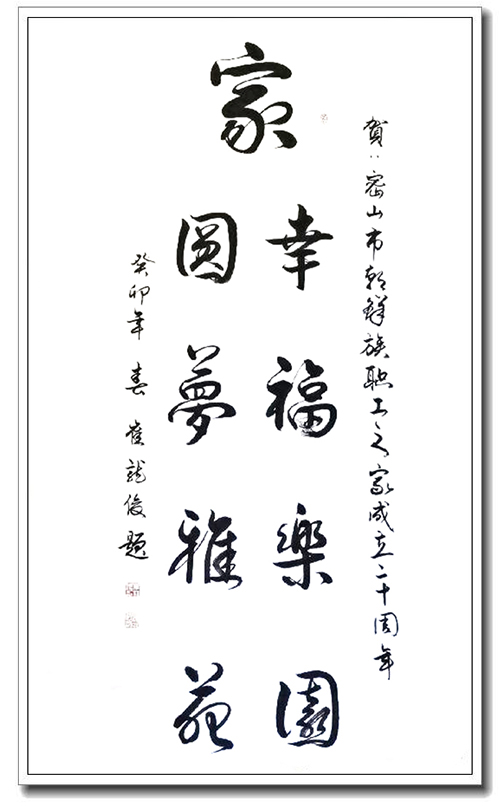 賀:密山市朝鲜族职工之家成立二十周年
家
幸福樂園
圓夢雅苑
癸卯年 春 崔龍俊題